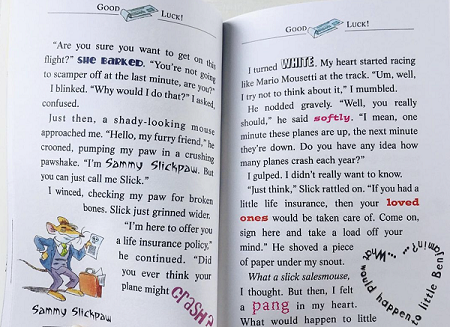 GOOD LUCK!
"Are you sure you want to get on this
flight?" SHE BARKED. "You're not going
to scamper off at the last minute, are you?"
I blinked. "Why would I do that?" I asked,
confused.
Just then, a shady-looking mouse
approached me. "Hello, my furry friend," he
crooned, pumping my paw in a crushing
pawshake. "I'm Sammy Slickpaw. But
you can just call me Slick."
I winced, checking my paw for broken
bones. Slick just grinned wider.
"I'm here to offer you
a life insurance policy,"
he continued. "Did
you ever think your
plane might crash?
Sammy Slickpaw
GOOD LUCK!
I turned WHITE. My heart started racing
like Mario Mousetti at the track. "Um, well,
I try not to think about it," I mumbled.
He nodded gravely. "Well, you really
should," he said softly. "I mean, one
minute these planes are up, the next minute
they're down. Do you have any idea how
many planes crash each year?"
I gulped. I didn't really want to know.
"Just think," Slick rattled on. "If you had a
little life insurance, then your loved
ones would be taken care of. Come on,
sign here and take a load off your
mind." He shoved a piece
of paper under my snout.
What a slick salesmouse,
I thought. But then, I felt
a pang in my heart.
What would happen to little
...What would happen to little Benjamin?...